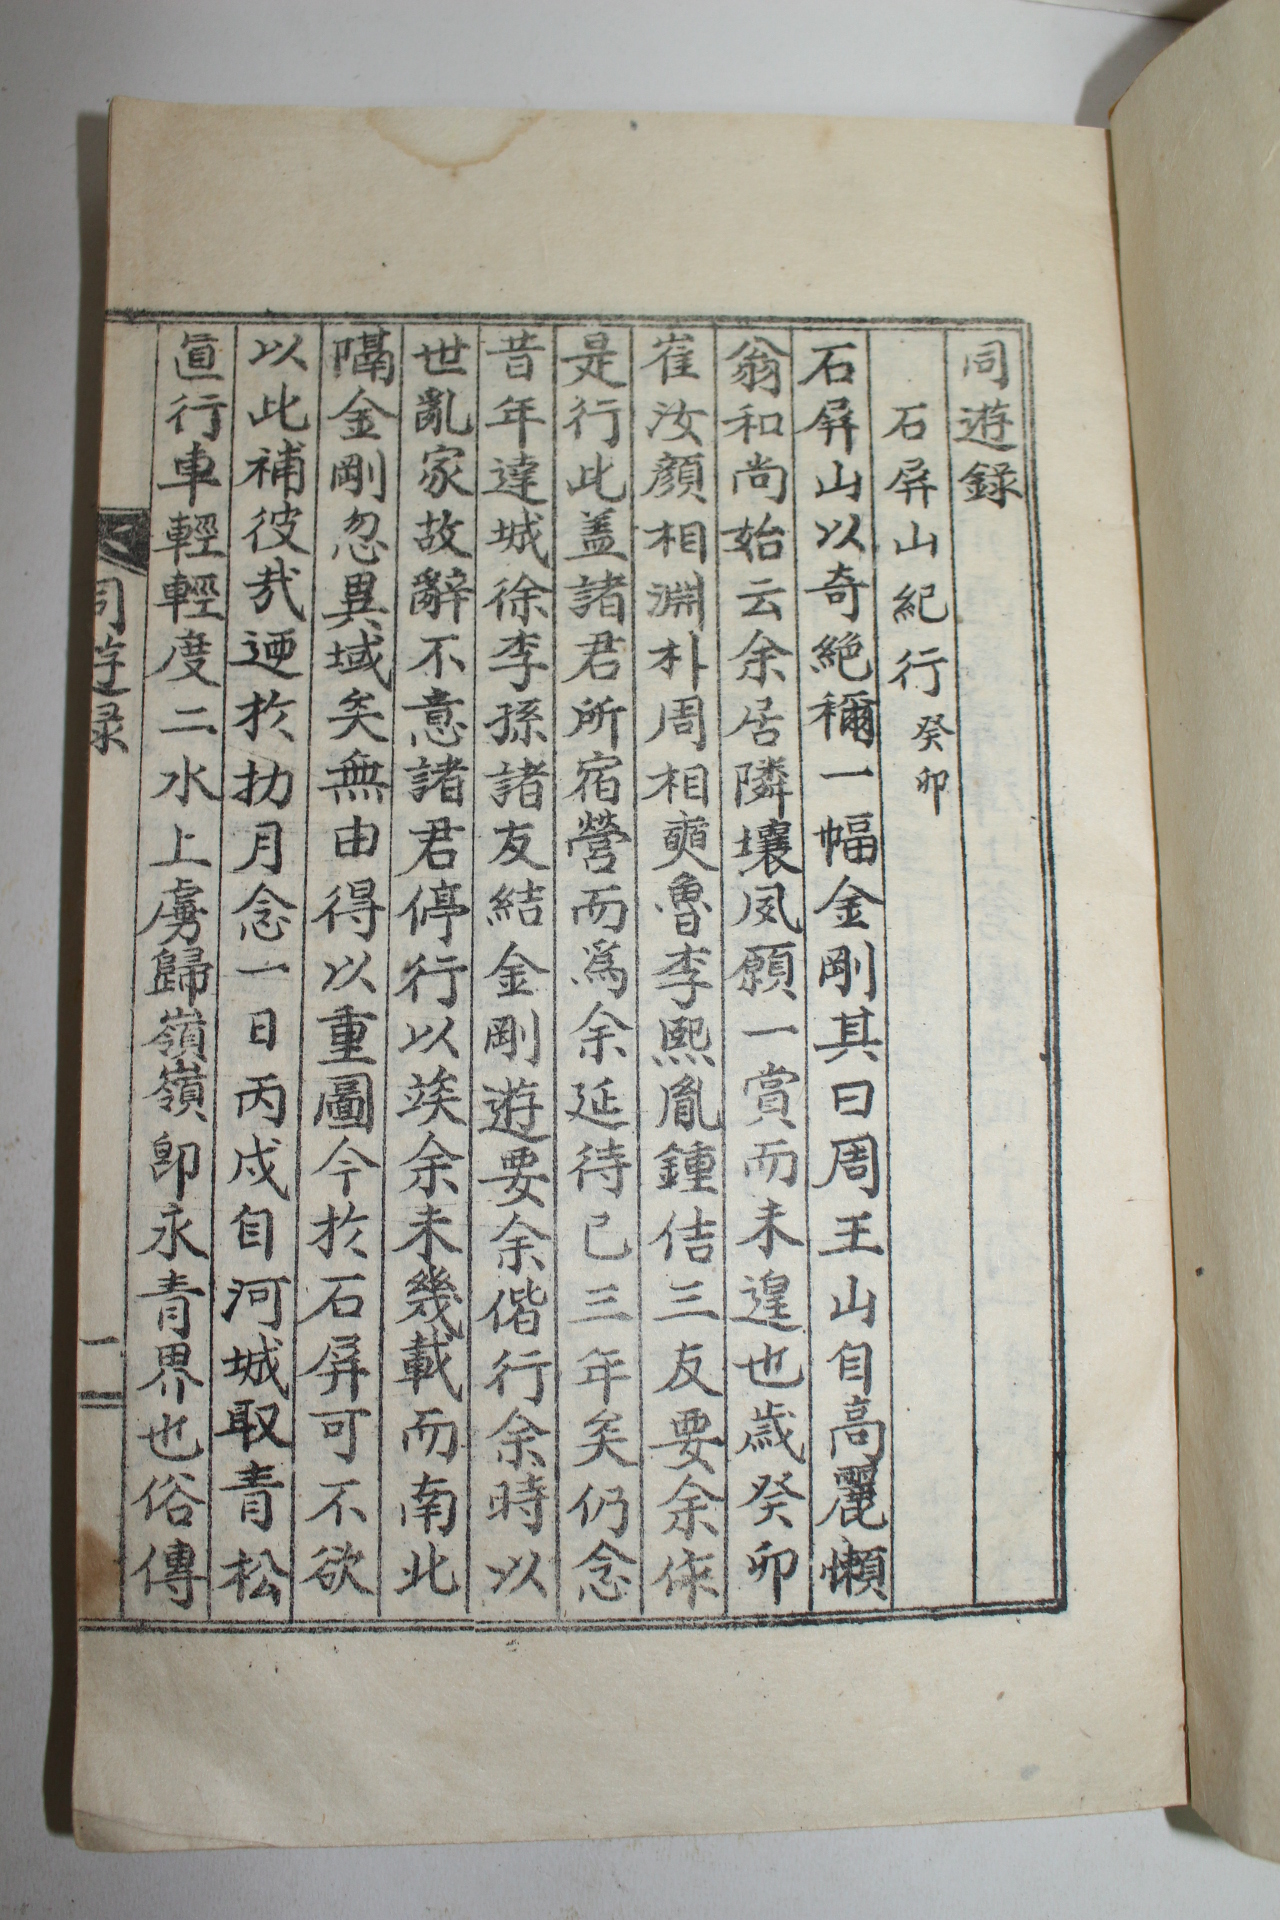 同遊錄
石屛山紀行 癸卯
石屛山以奇絶稱一幅金剛其曰周王山自高麗懶
翁和尙始云余居隣壤夙願一賞而未遑也歲癸卯
崔汝顔相淵朴周相奭魯李熙胤鍾佶三友要余俫
是行此盖諸君所宿營而爲余延待已三年矣仍念
昔年達城徐李孫諸友結金剛遊要余偕行余時以
世亂家故辭不意諸君停行以竢余未幾載而南北
隔金剛忽異域矣無由得以重圖今於石屛可不欲
以此補彼㢤廼於抝月念一日丙戌自河城取青松
道行車輕輕度二水上虜歸嶺嶺卽永青界也俗傳
同遊录
一